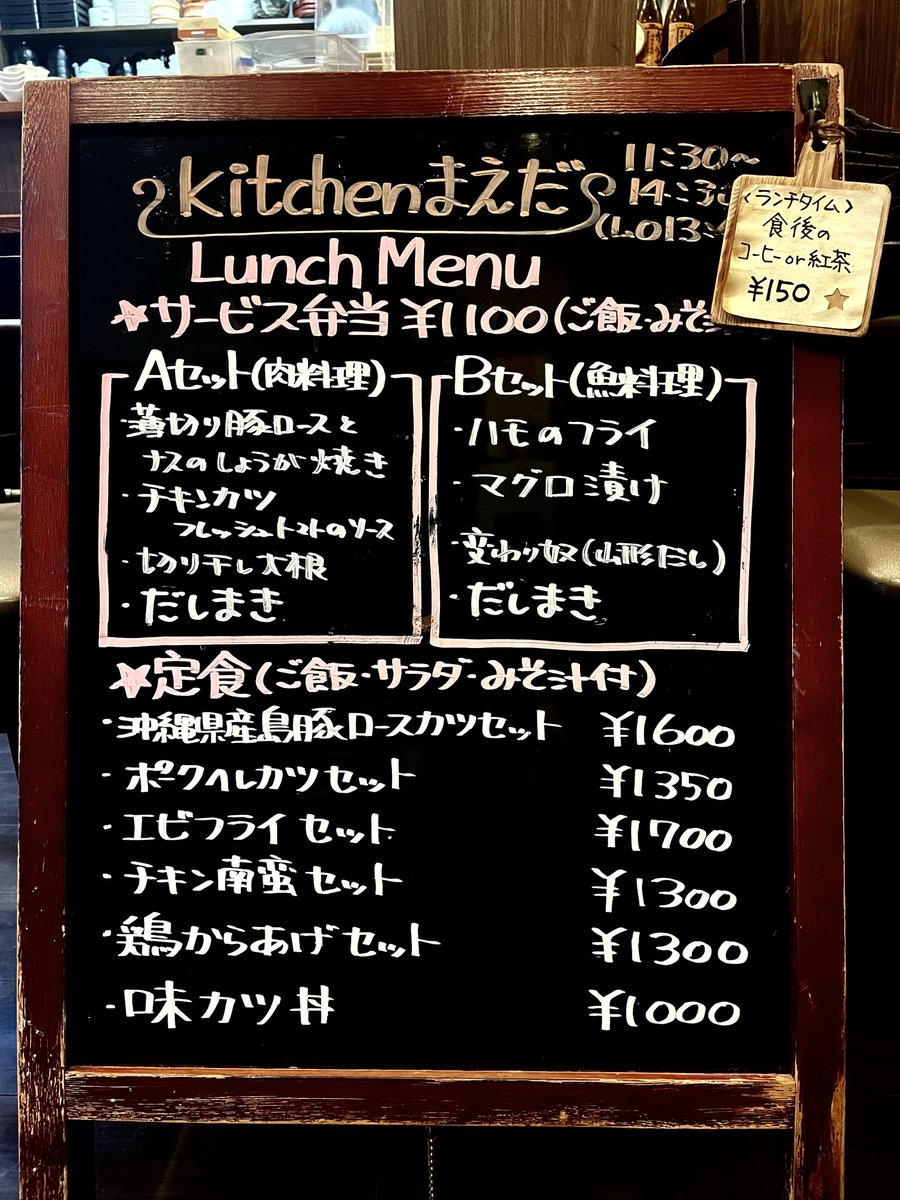 Kitchenまえだ
11:30～
14:30
(L.O13:
Lunch Menu
<ランチタイム>
食後の
コーヒーor紅茶
¥150
☆サービス弁当 ¥1100(ご飯・みそ
Aセット(肉料理)
・薄切り豚ロースと
ナスのしょうが焼き
・チキンカツ
フレッシュトマトのソース
・切り干し大根
・だしまき
Bセット(魚料理)
・ハモのフライ
・マグロ漬け
・変わり奴(山形だし)
・だしまき
☆定食(ご飯・サラダ・みそ汁付)
・沖縄県産島豚ロースカツセット ¥1600
・ポークヘレカツセット ¥1350
・エビフライセット ¥1700
・チキン南蛮セット ¥1300
・鶏からあげセット ¥1300
・味カツ丼 ¥1000